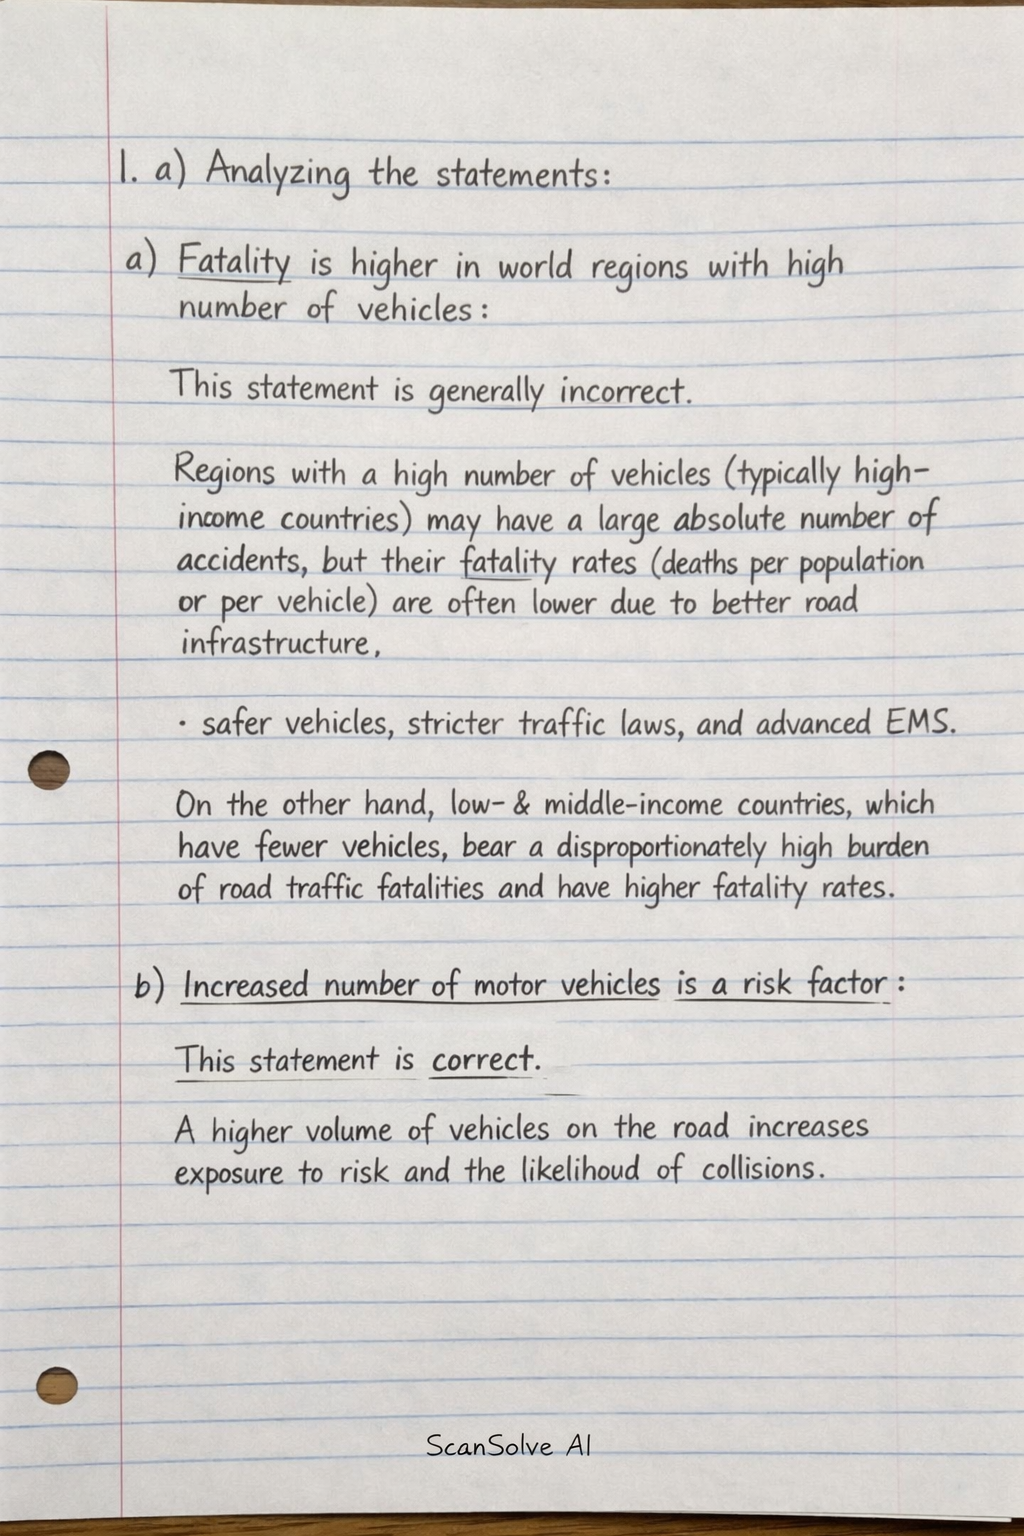 1. a) Analyzing the statements:
a) Fatality is higher in world regions with high
number of vehicles:
This statement is generally incorrect.
Regions with a high number of vehicles (typically high-
income countries) may have a large absolute number of
accidents, but their fatality rates (deaths per population
or per vehicle) are often lower due to better road
infrastructure,
· safer vehicles, stricter traffic laws, and advanced EMS.
On the other hand, low- & middle-income countries, which
have fewer vehicles, bear a disproportionately high burden
of road traffic fatalities and have higher fatality rates.
b) Increased number of motor vehicles is a risk factor:
This statement is correct.
A higher volume of vehicles on the road increases
exposure to risk and the likelihoud of collisions.
ScanSolve AI